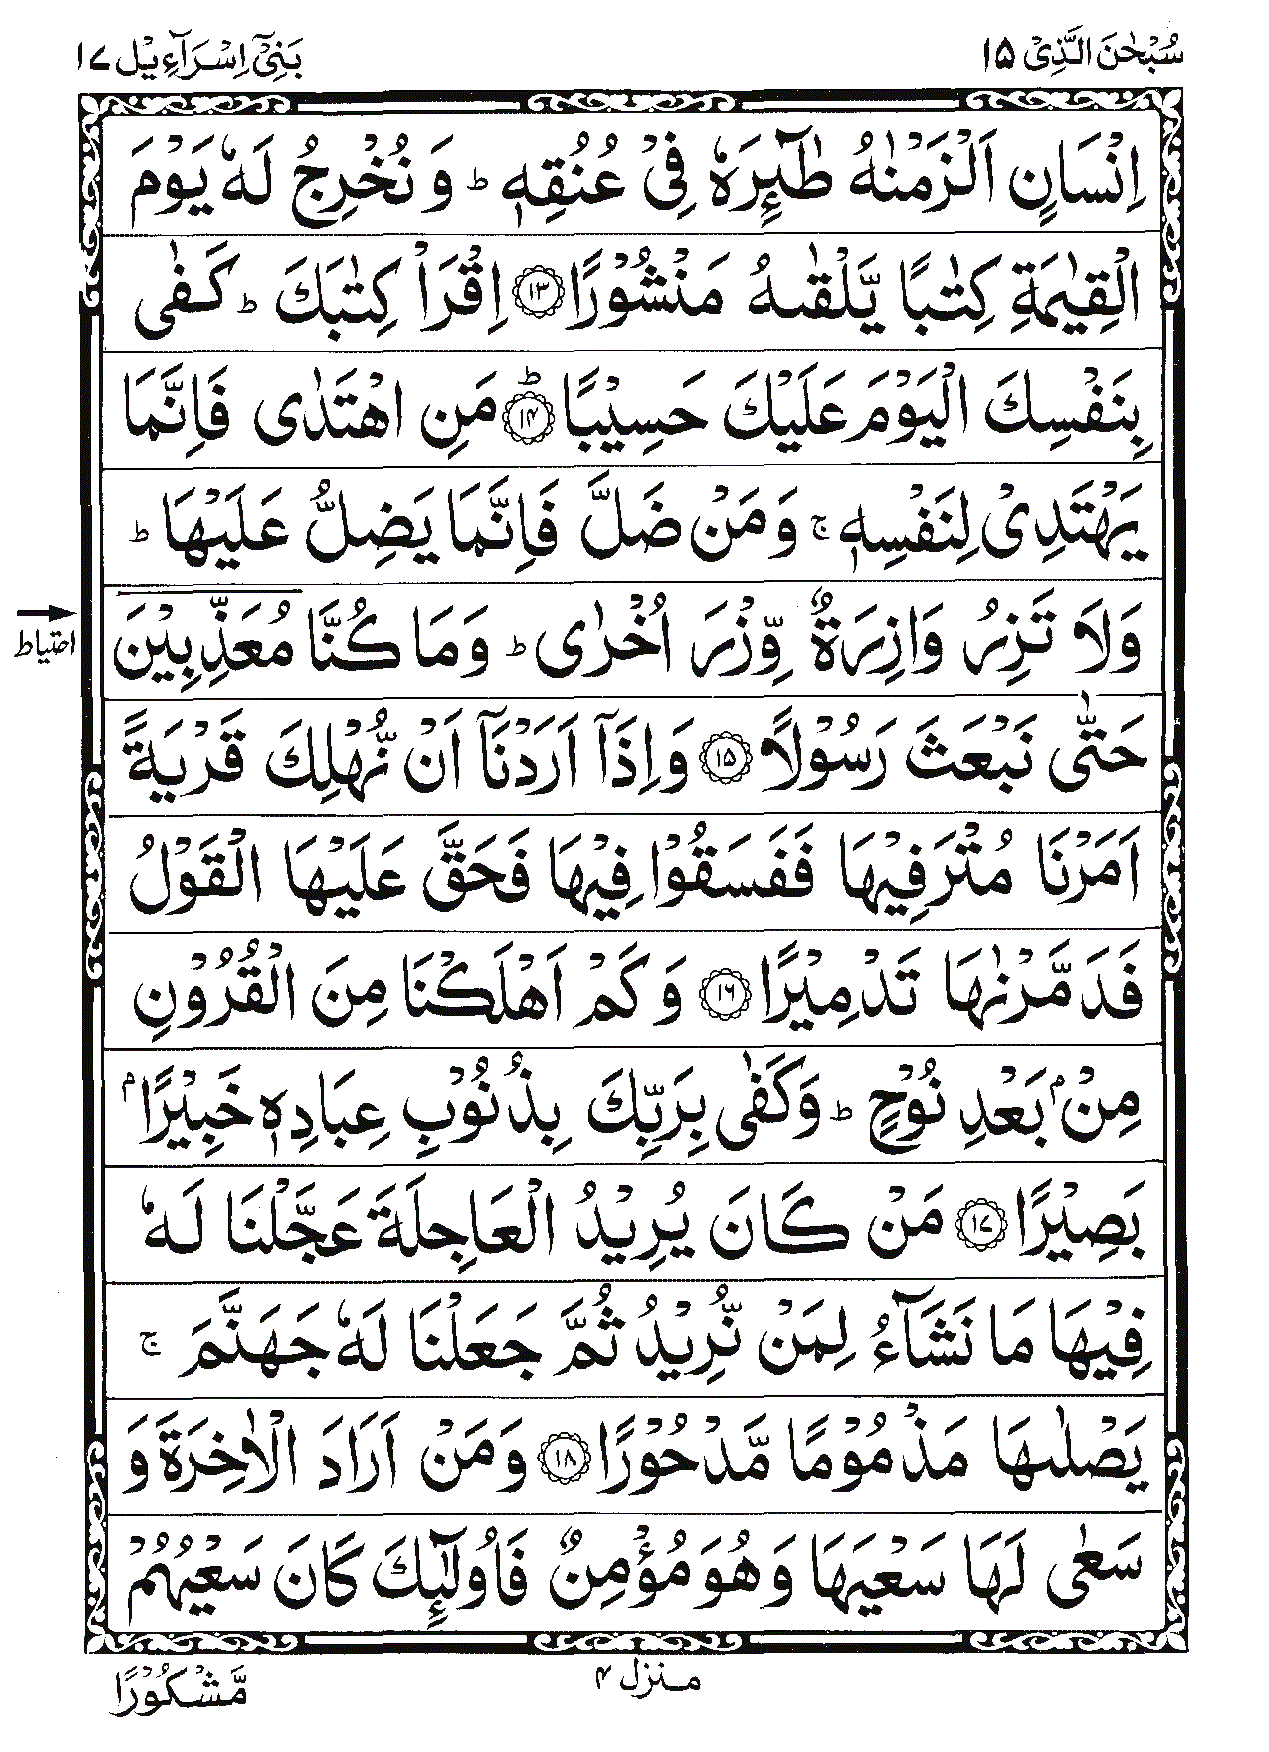 سُبْحٰنَ الَّذِیْ ۱۵
بَنِیْٓ اِسْرَآءِیْل ۱۷
اِنْسَانٍ اَلْزَمْنٰهُ طٰٓئِرَهٗ فِیْ عُنُقِهٖ ؕ وَ نُخْرِجُ لَهٗ یَوْمَ
الْقِیٰمَةِ كِتٰبًا یَّلْقٰىهُ مَنْشُوْرًا ﴿۱۳﴾ اِقْرَاْ كِتٰبَكَ ؕ كَفٰی
بِنَفْسِكَ الْیَوْمَ عَلَیْكَ حَسِیْبًا ؕ﴿۱۴﴾ مَنِ اهْتَدٰی فَاِنَّمَا
یَهْتَدِیْ لِنَفْسِهٖ ۚ وَ مَنْ ضَلَّ فَاِنَّمَا یَضِلُّ عَلَیْهَا ؕ
وَلَا تَزِرُ وَازِرَةٌ وِّزْرَ اُخْرٰی ؕ وَمَا كُنَّا مُعَذِّبِیْنَ
احتیاط
حَتّٰی نَبْعَثَ رَسُوْلًا ﴿۱۵﴾ وَاِذَاۤ اَرَدْنَاۤ اَنْ نُّهْلِكَ قَرْیَةً
اَمَرْنَا مُتْرَفِیْهَا فَفَسَقُوْا فِیْهَا فَحَقَّ عَلَیْهَا الْقَوْلُ
فَدَمَّرْنٰهَا تَدْمِیْرًا ﴿۱۶﴾ وَ كَمْ اَهْلَكْنَا مِنَ الْقُرُوْنِ
مِنْۢ بَعْدِ نُوْحٍ ؕ وَكَفٰی بِرَبِّكَ بِذُنُوْبِ عِبَادِهٖ خَبِیْرًۢا
بَصِیْرًا ﴿۱۷﴾ مَنْ كَانَ یُرِیْدُ الْعَاجِلَةَ عَجَّلْنَا لَهٗ
فِیْهَا مَا نَشَآءُ لِمَنْ نُّرِیْدُ ثُمَّ جَعَلْنَا لَهٗ جَهَنَّمَ ۚ
یَصْلٰىهَا مَذْمُوْمًا مَّدْحُوْرًا ﴿۱۸﴾ وَمَنْ اَرَادَ الْاٰخِرَةَ وَ
سَعٰی لَهَا سَعْیَهَا وَهُوَ مُؤْمِنٌ فَاُولٰٓئِكَ كَانَ سَعْیُهُمْ
منزل ۴
مَّشْكُوْرًا